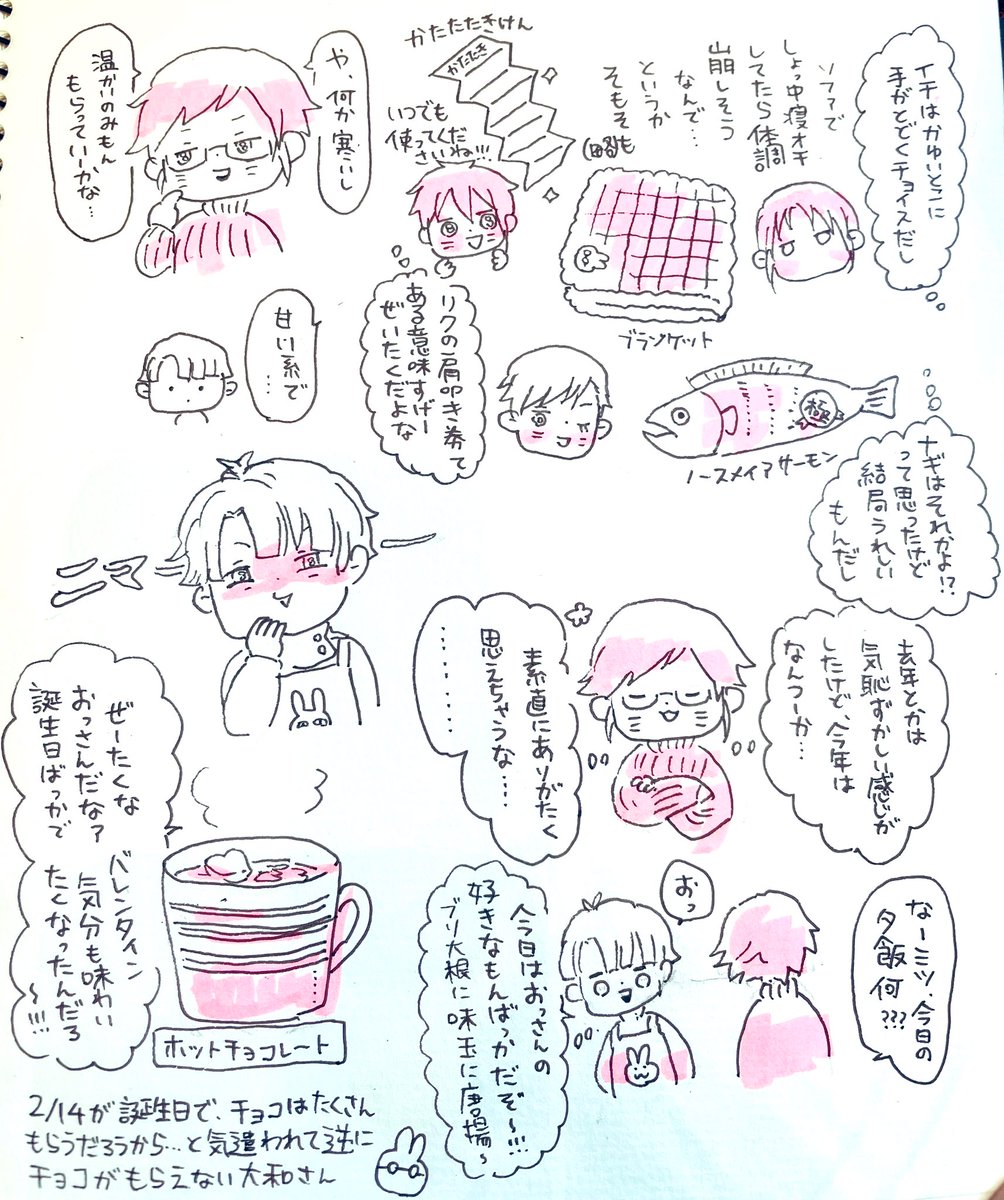 イチはかゆいとこに
手がとどくチョイスだし
ソファで
しょっ中寝オチ
してたら体調
崩しそう
なんで…
というか
そもそも
(略)
ブランケット
かたたたきけん
かたたたき
いつでも
使ってくだ
さいね!!!
リクの肩叩き券て
ある意味すげー
ぜいたくだよな
ノースメイアサーモン
極
ナギはそれかよ!?
って思ったけど
結局うれしい
もんだし
去年とかは
気恥ずかしい感じが
したけど、今年は
なんつーか…
素直にありがたく
思えちゃうな……
………
や、何か寒いし
温かいのみもん
もらっていーかな…
甘い系で
…
ニマ
なーミツ、今日の
夕飯何???
おっ
今日はおっさんの
好きなもんばっかだぞ〜!!!
ブリ大根に味玉に唐揚〜
ぜーたくな
おっさんだな?
誕生日ばっかで
バレンタイン
気分も味わい
たくなったんだろ
〜!!!!
ホットチョコレート
2/14が誕生日で、チョコはたくさん
もらうだろうから…と気遣われて逆に
チョコがもらえない大和さん